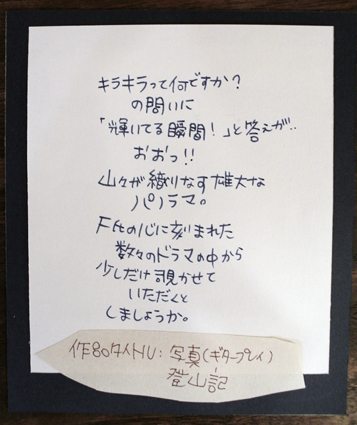 キラキラって何ですか?
の問いに
「輝いてる瞬間!」と答えが..
おおっ!!
山々が織りなす雄大な
パノラマ。
F氏の心に刻まれた
数々のドラマの中から
少しだけ覗かせて
いただくと
しましょうか。
作品タイトル:写真(ギタープレイ)
登山記